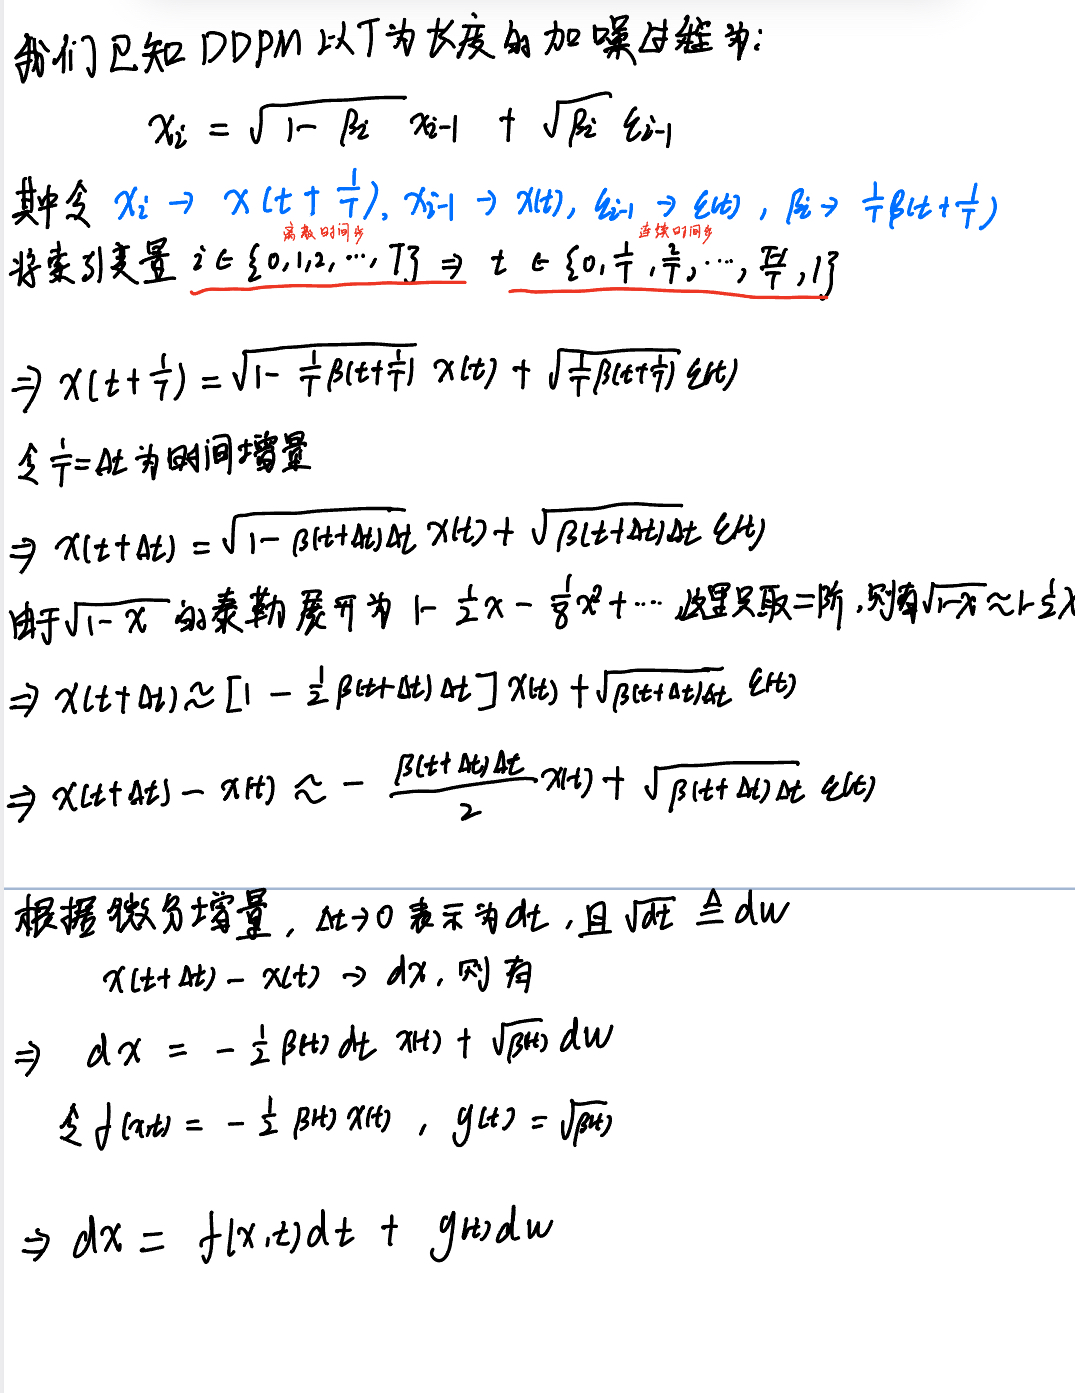 我们已知 DDPM 以T为长度的加噪过程为:
x_i = √(1-β_i) x_{i-1} + √β_i ε_{i-1}
其中令 x_i → x(t+1/T), x_{i-1} → x(t), ε_{i-1} → ε(t), β_i → 1/T β(t+1/T)
离散时间步 连续时间步
将索引变量 i ∈ {0,1,2,…,T} ⇒ t ∈ {0, 1/T, 2/T, …, (T-1)/T, 1}
⇒ x(t+1/T) = √(1-1/T β(t+1/T)) x(t) + √(1/T β(t+1/T)) ε(t)
令 1/T = Δt 为时间增量
⇒ x(t+Δt) = √(1-β(t+Δt)Δt) x(t) + √(β(t+Δt)Δt) ε(t)
由于√(1-x) 的泰勒展开为 1 - 1/2 x - 1/8 x² + … 这里只取二阶,则有√(1-x) ≈ 1-1/2 x
⇒ x(t+Δt) ≈ [1 - 1/2 β(t+Δt)Δt] x(t) + √(β(t+Δt)Δt) ε(t)
⇒ x(t+Δt) - x(t) ≈ - β(t+Δt)Δt/2 x(t) + √(β(t+Δt)Δt) ε(t)
根据微分增量, Δt→0 表示为dt, 且 √dt ≜ dw
x(t+Δt) - x(t) → dx, 则有
⇒ dx = - 1/2 β(t) dt x(t) + √β(t) dw
令 f(x,t) = - 1/2 β(t) x(t), g(t) = √β(t)
⇒ dx = f(x,t)dt + g(t)dw